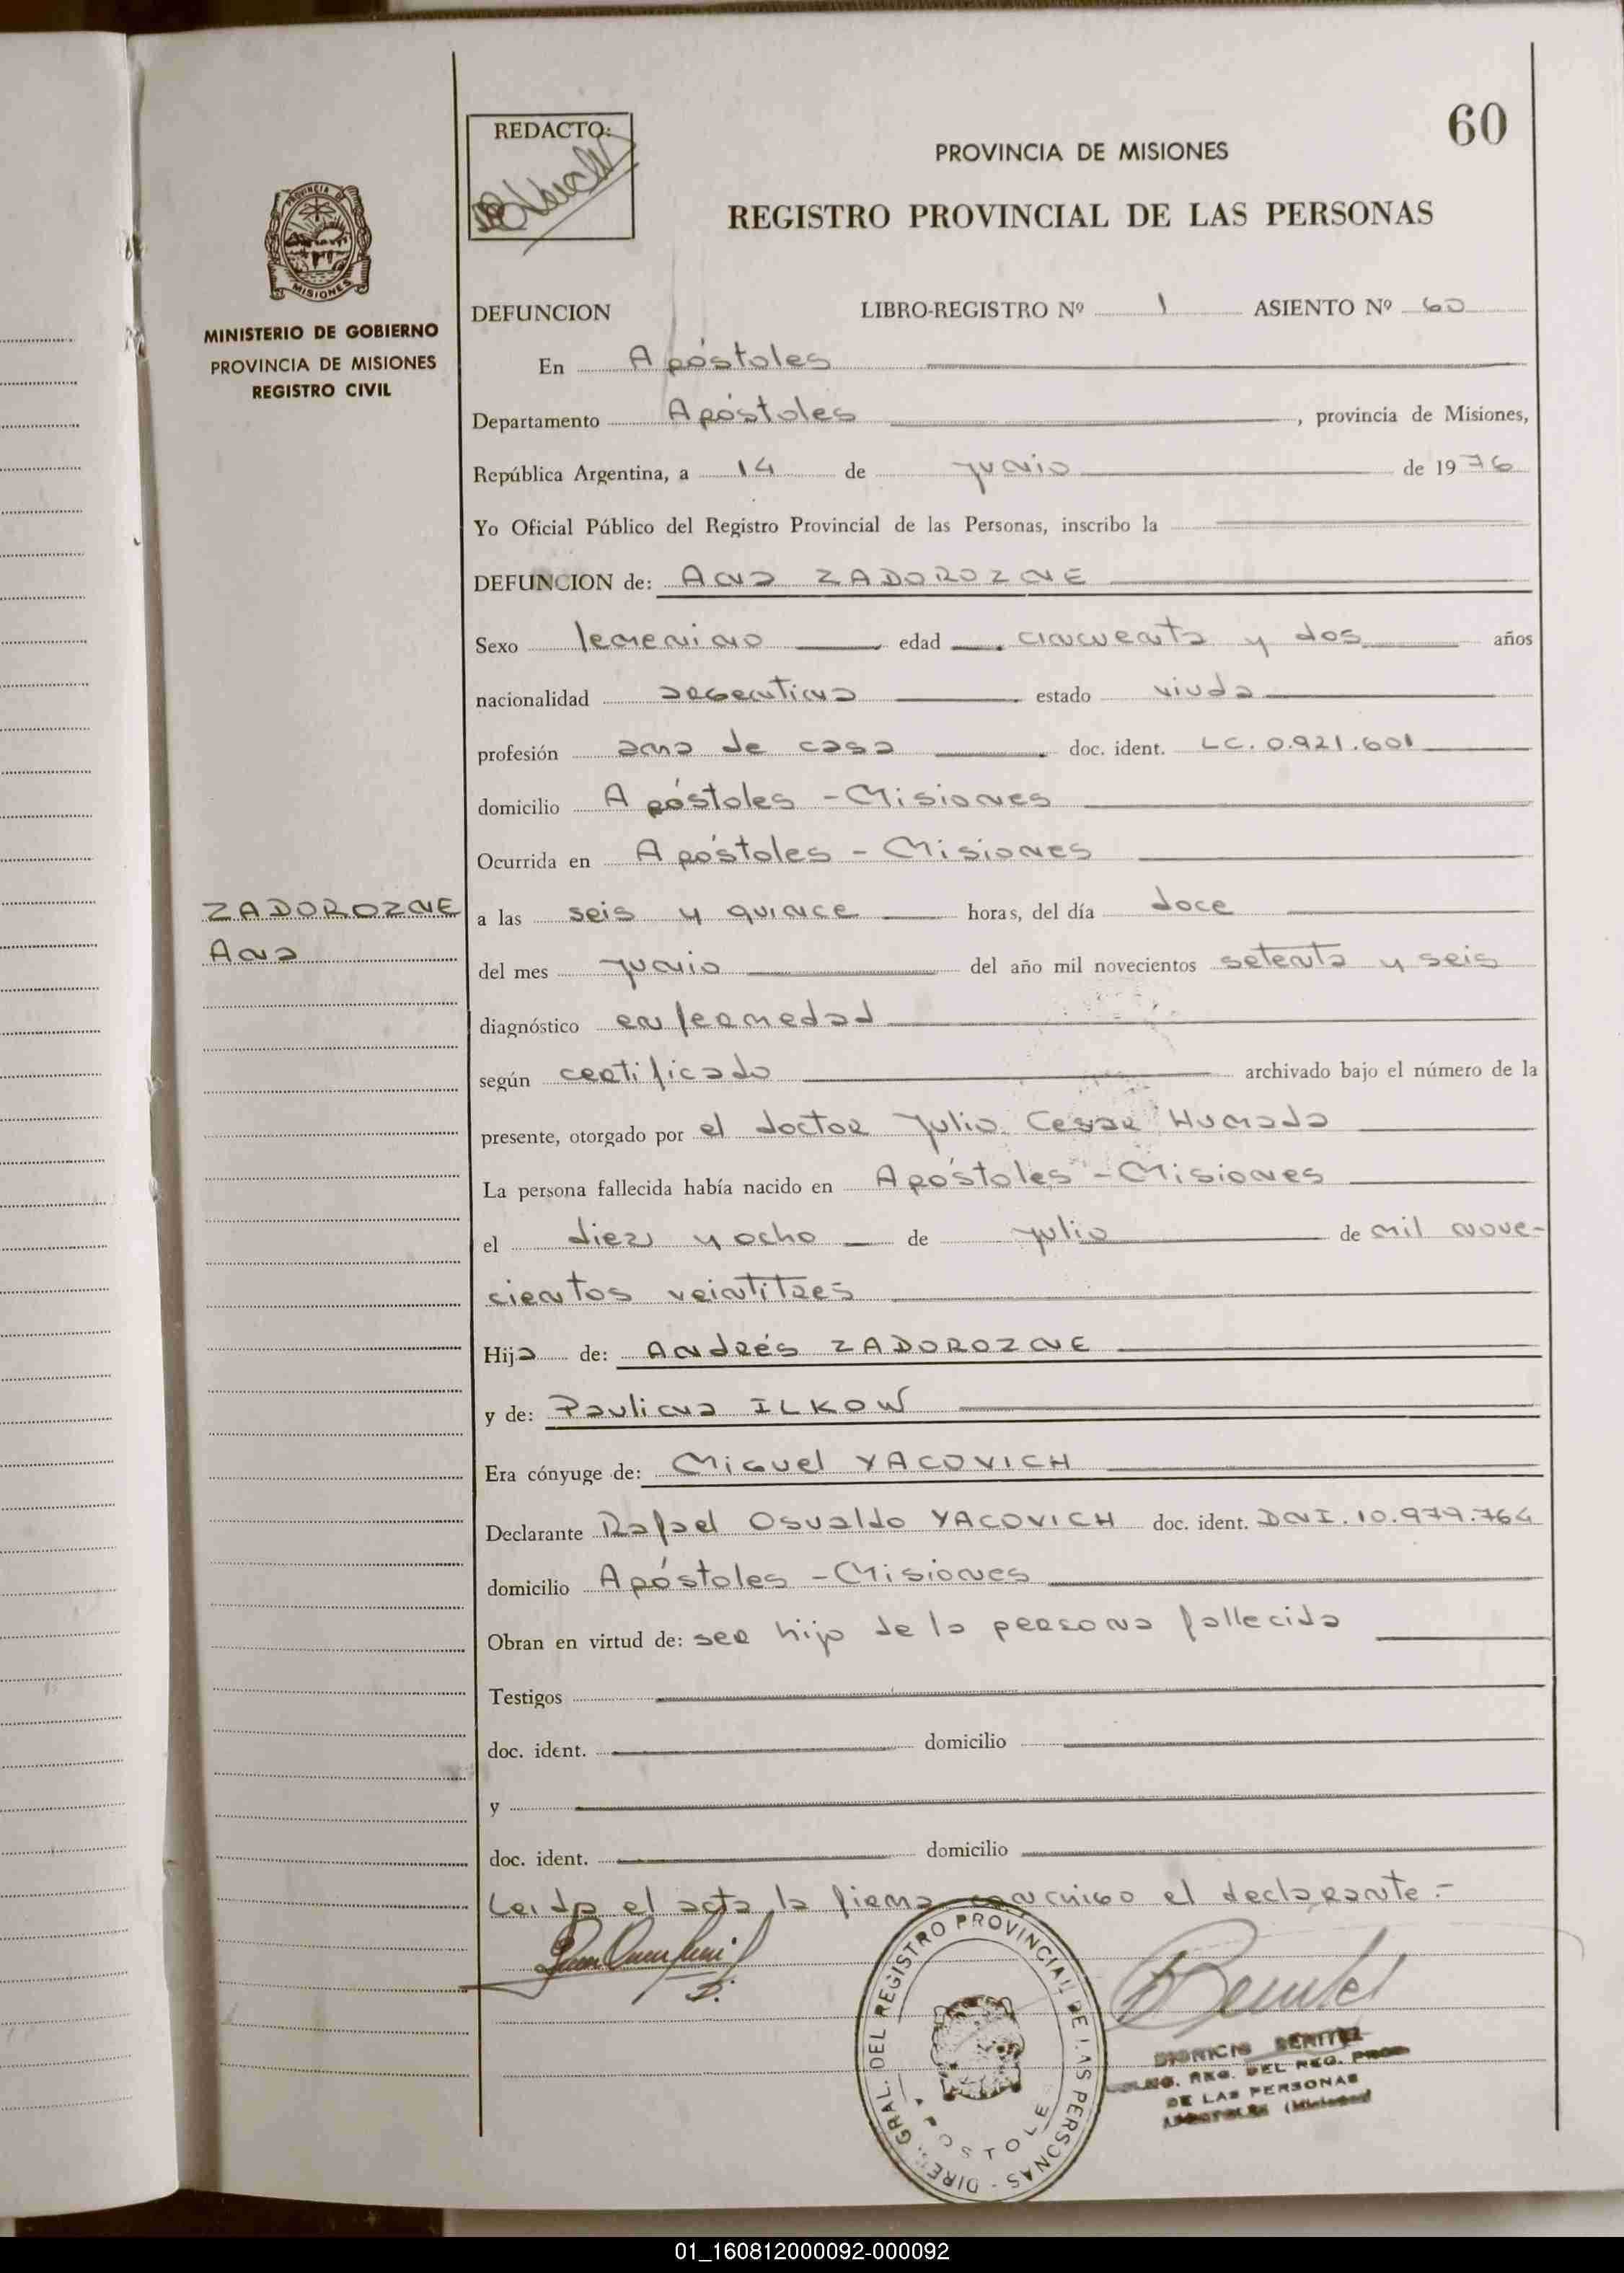 60
REDACTO:
PROVINCIA DE MISIONES
REGISTRO PROVINCIAL DE LAS PERSONAS
PROVINCIA DE
MISIONES
MINISTERIO DE GOBIERNO
PROVINCIA DE MISIONES
REGISTRO CIVIL
DEFUNCION LIBRO-REGISTRO Nº 1 ASIENTO Nº 60
En Apóstoles
Departamento Apóstoles, provincia de Misiones,
República Argentina, a 14 de junio de 1976
Yo Oficial Público del Registro Provincial de las Personas, inscribo la
DEFUNCION de: Ana ZADOROZNE
Sexo femenino edad cincuenta y dos años
nacionalidad argentina estado viuda
profesión ama de casa doc. ident. LC. 0.921.601
domicilio Apóstoles - Misiones
Ocurrida en Apóstoles - Misiones
ZADOROZNE
Ana
a las seis y quince horas, del día doce
del mes junio del año mil novecientos setenta y seis
diagnóstico enfermedad
según certificado archivado bajo el número de la
presente, otorgado por el doctor Julio Cesar Humada
La persona fallecida había nacido en Apóstoles - Misiones
el diez y ocho de julio de mil nove-
cientos veintitres
Hija de: Andrés ZADOROZNE
y de: Paulina ILKOW
Era cónyuge de: Miguel YACOVICH
Declarante Rafael Osvaldo YACOVICH doc. ident. DNI. 10.979.764
domicilio Apóstoles - Misiones
Obran en virtud de: ser hijo de la persona fallecida
Testigos
doc. ident. domicilio
y
doc. ident. domicilio
Leida el acta, la firma conmigo el declarante.-
DIREC. GRAL. DEL REGISTRO PROVINCIAL DE LAS PERSONAS -
APOSTOLES
DIONICIO BENITEZ
REG. DEL REG. PROV.
DE LAS PERSONAS
APOSTOLES (Misiones)
01_160812000092-000092